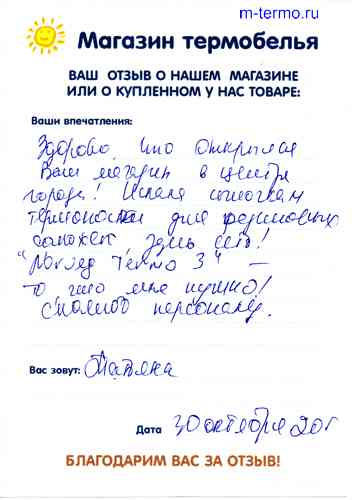 m-termo.ru
Магазин термобелья
ВАШ ОТЗЫВ О НАШЕМ МАГАЗИНЕ
ИЛИ О КУПЛЕННОМ У НАС ТОВАРЕ:
Ваши впечатления:
Здорово, что открылся
Ваш магазин в центре
города! Искала
термоноски для резиновых
сапожек, здесь есть!
"Norveg Termo 3" –
то что мне нужно!
Спасибо персоналу.
Вас зовут: Татьяна
Дата 30 октября 20г
БЛАГОДАРИМ ВАС ЗА ОТЗЫВ!